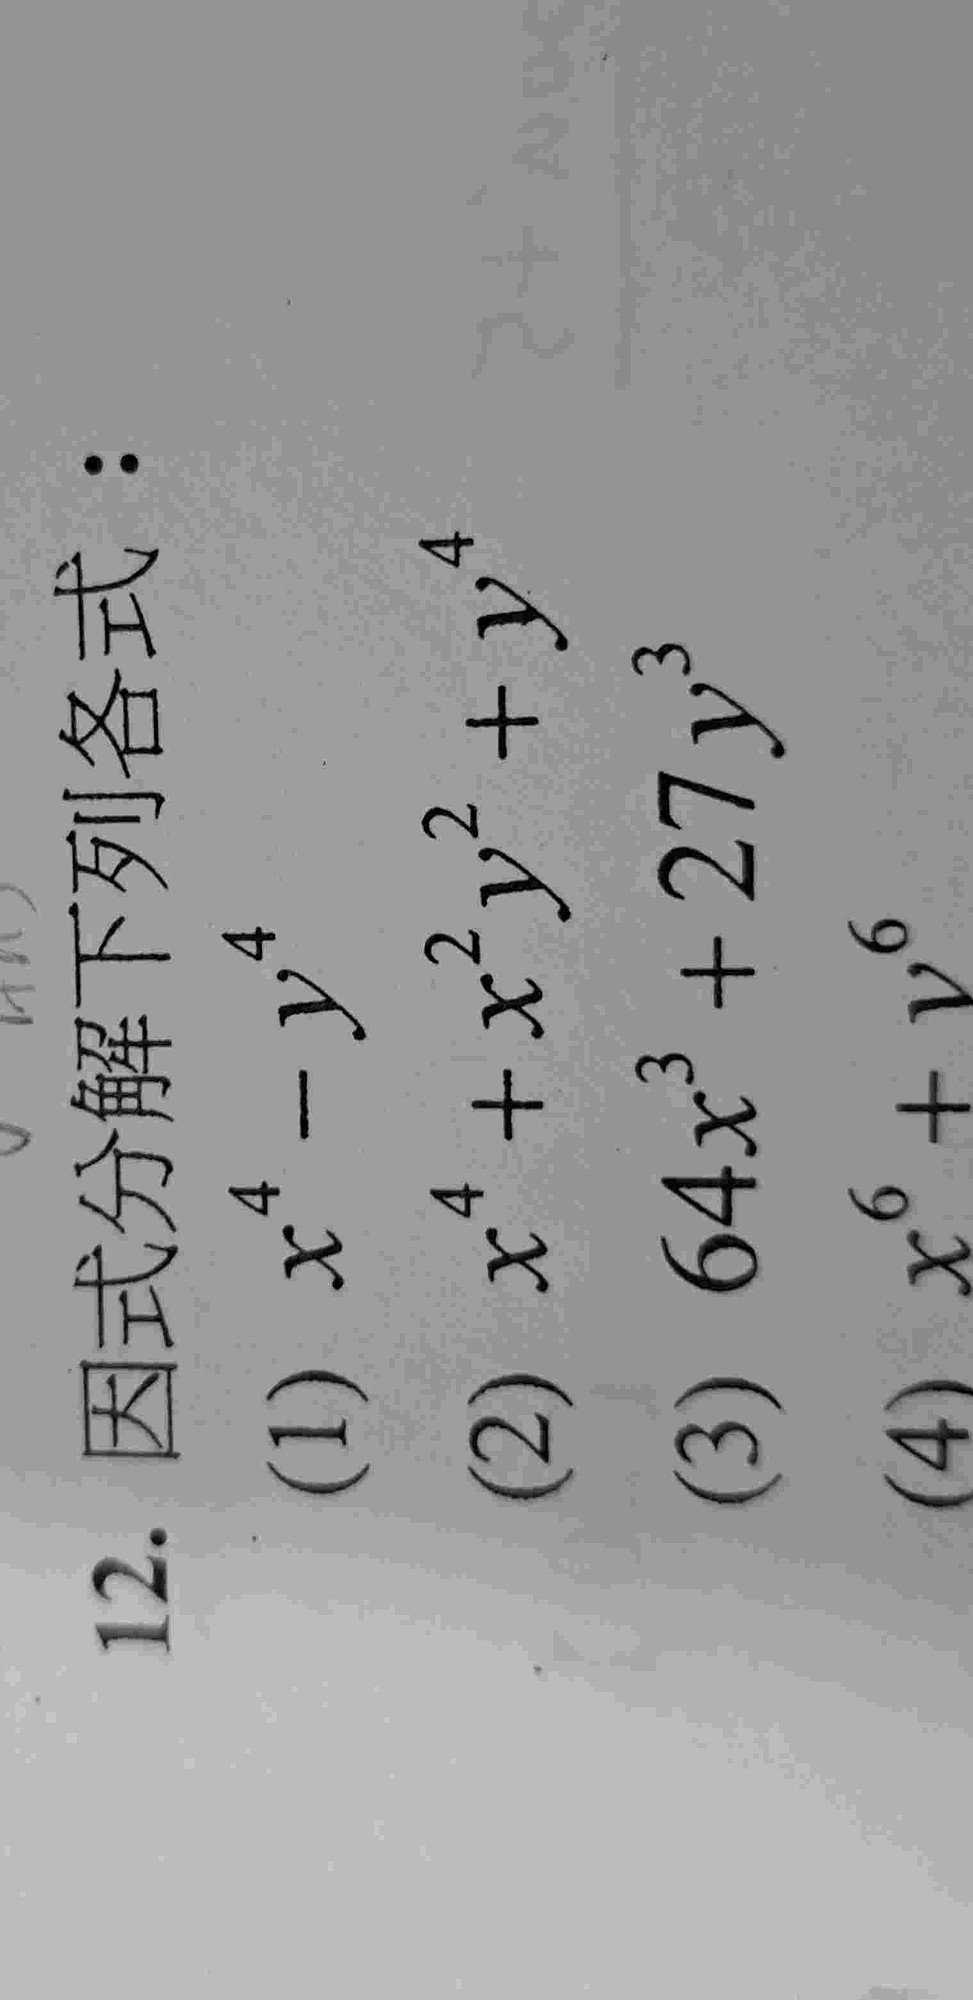 12. 因式分解下列各式：
(1) x⁴ − y⁴
(2) x⁴ + x²y² + y⁴
(3) 64x³ + 27y³
(4) x⁶ + y⁶